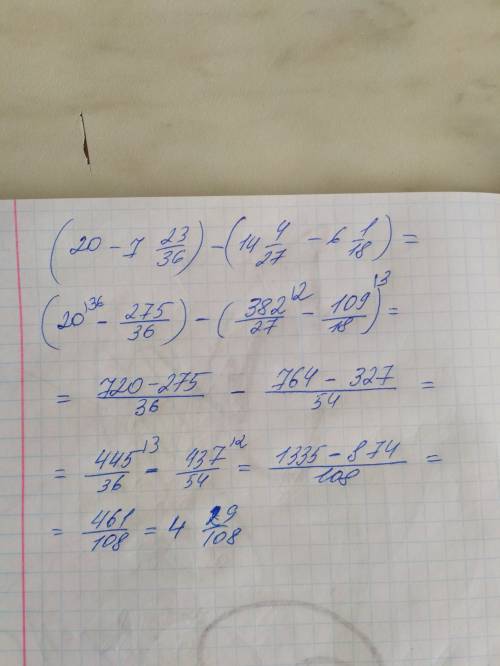 (20 - 7 23/36) - (14 4/27 - 6 1/18) =
(20^36 - 275/36) - (382/27^2 - 109/18^3) =
= (720 - 275)/36 - (764 - 327)/54 =
= 445/36^3 - 437/54^2 = (1335 - 874)/108 =
= 461/108 = 4 29/108